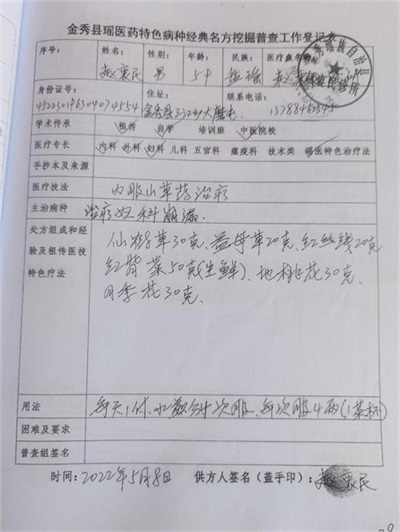 金秀县瑶医药特色病种经典名方挖掘普查工作登记表
序号： 姓名： 性别： 年龄： 民族： 医疗点名称
男
身份证号： 住址： 联系电话：
学术传承 祖传 自学 培训班 中医院校
医疗专长 内科 外科 妇科 儿科 五官科 瘟疫科 技术类 瑶医特色治疗法
手抄本及来源
医疗技法 内服山草药治疗
主治病种 治疗妇科崩漏.
处方组成和经
验及祖传医技
特色疗法
仙鹤草30克、益母草20克、红丝线20克
红背菜50克(生鲜)、地桃花30克
月季花30克、
用法 每天1付、水煎分 次服、每次服4两(1茶杯)
困难及要求
普查组签名
时间：2022年5月8日 供方人签名（盖手印）：